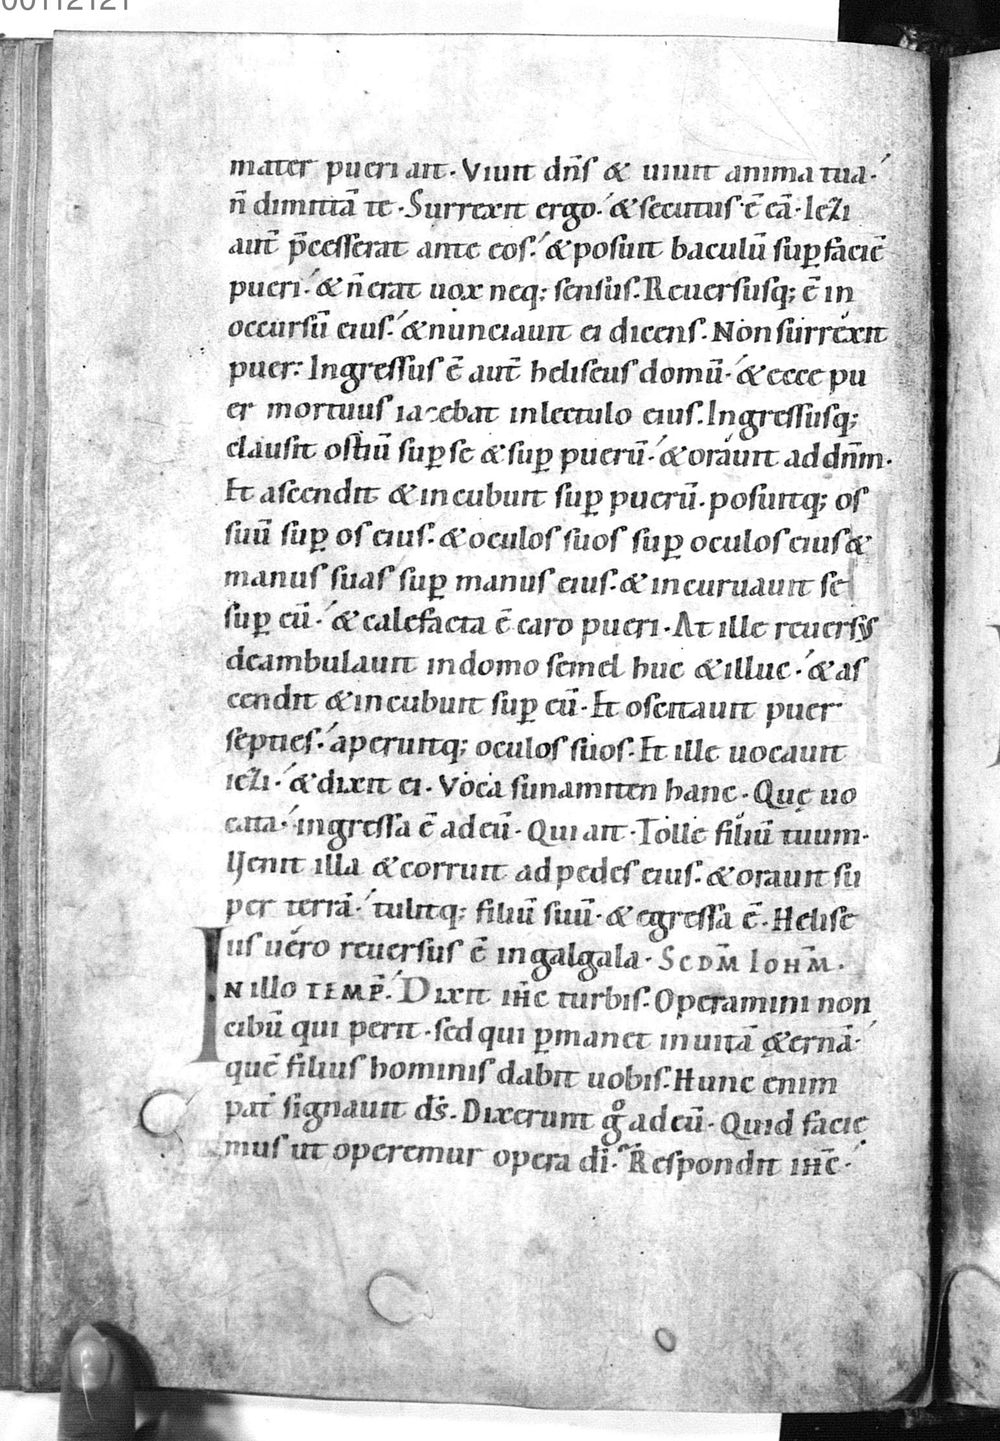 00112121
mater pueri ait. Viuit dn̄s & uiuit anima tua.
n̄ dimittā te. Surrexit ergo. & secutus ē eā. Iezi
aut̄ p̄cesserat ante eos. & posuit baculū suꝑ faciē
pueri. & n̄ erat uox neq; sensus. Reuersusq; ē in
occursū eius. & nunciauit ei dicens. Non surrexit
puer. Ingressus ē aut̄ heliseus domū. & ecce pu
er mortuus iacebat in lectulo eius. Ingressusq;
clausit ostiū suꝑ se & suꝑ puerū. & orauit ad dn̄m.
Et ascendit & incubuit suꝑ puerū. posuitq; os
suū suꝑ os eius. & oculos suos suꝑ oculos eius &
manus suas suꝑ manus eius. & incuruauit se
suꝑ eū. & calefacta ē caro pueri. At ille reuersus
deambulauit in domo semel huc & illuc. & as
cendit & incubuit suꝑ eū. Et oscitauit puer
septies. aperuitq; oculos suos. Et ille uocauit
iezi. & dixit ei. Voca sunamiten hanc. Quę uo
cata. ingressa ē ad eū. Qui ait. Tolle filiū tuum.
Uenit illa & corruit ad pedes eius. & orauit su
per terrā. tulitq; filiū suū. & egressa ē. Helise
us uero reuersus ē in galgala. Scdm̄ Iohm̄.
In illo temp̄. Dixit ih̄c turbis. Operamini non
cibū qui perit. sed qui ꝑmanet in uitā &ernā.
quē filius hominis dabit uobis. Hunc enim
pat̄ signauit ds̄. Dixerunt gͦ ad eū. Quid facie
mus ut operemur opera dī. Respondit ih̄c.